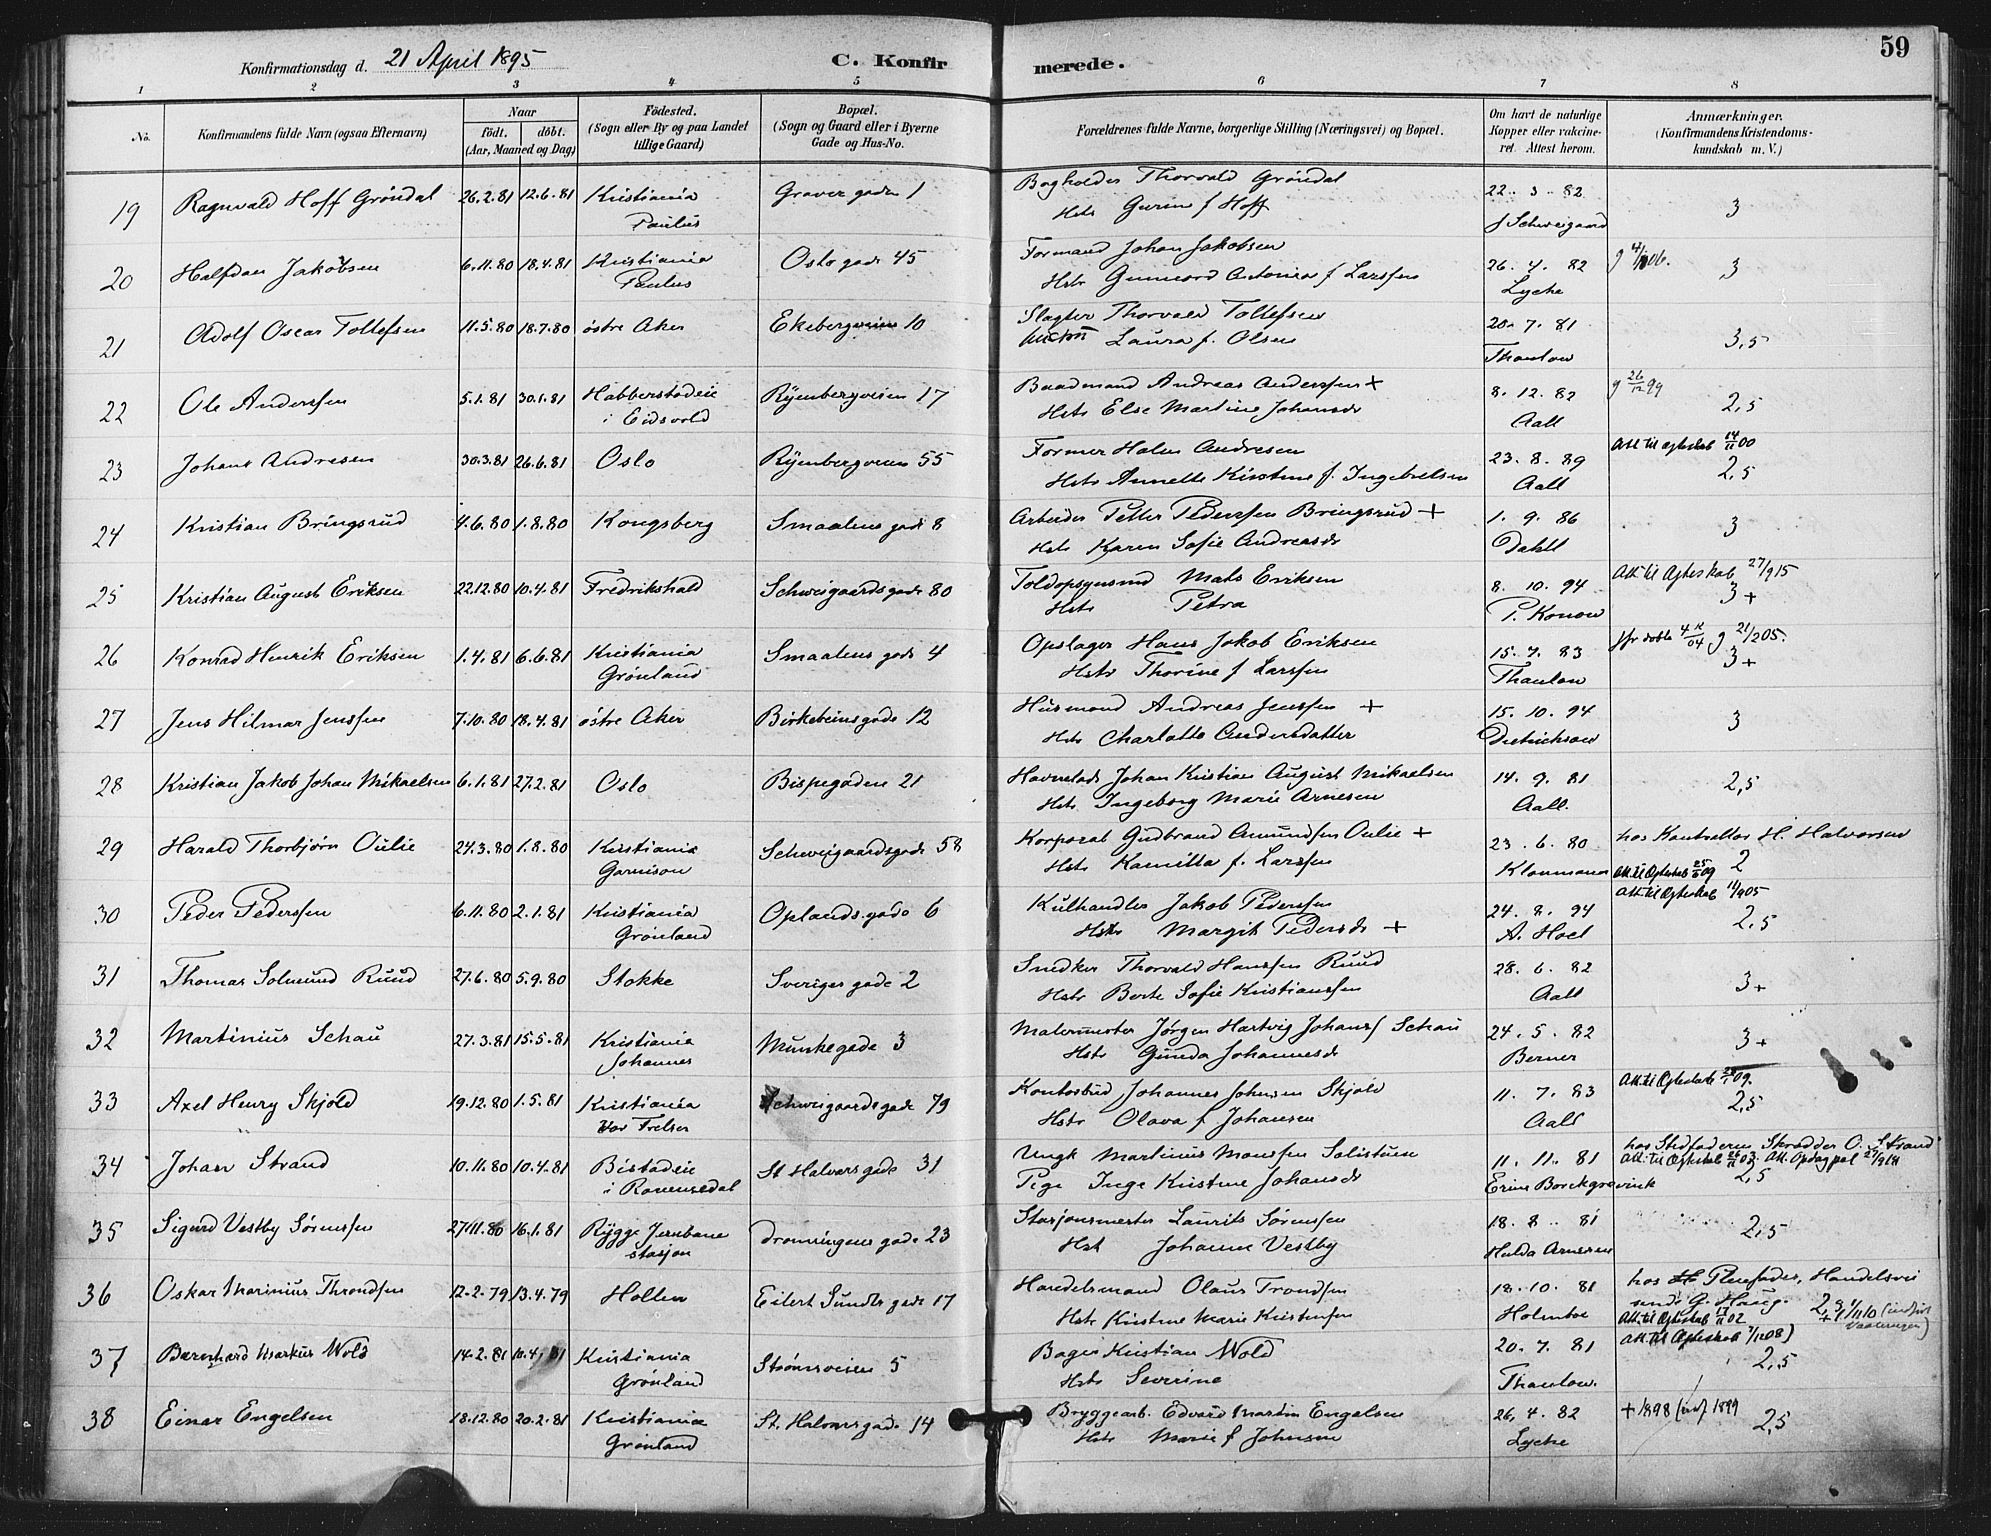 Konfirmationsdag d. 21 April 1895
C. Konfirmerede.
59
1 2 3 4 5 6 7 8
No.
Konfirmandens fulde Navn (ogsaa Efternavn)
Naar
født. døbt.
(Aar, Maaned og Dag)
Fødested.
(Sogn eller By og paa Landet
tillige Gaard)
Bopæl.
(Sogn og Gaard eller i Byerne
Gade og Hus-No.
Forældrenes fulde Navne, borgerlige Stilling (Næringsvei) og Bopæl.
Om havt de naturlige
Kopper eller vakcine-
ret. Attest herom.
Anmærkninger.
(Konfirmandens Kristendoms-
kundskab m. V.)
19 Ragnvald Hoff Grøndal 26.2.81 12.6.81 Kristiania Graver gaden 1 Bogholder Thorvald Grøndal 22. 3. 82 3
Paulus Hstr Gurine f Hoff J Schweigaard
20 Halfdan Jakobsen 6.11.80 18.4.81 Kristiania Oslo gade 45 Formand Johan Jakobsen 26. 4. 82 3
Paulus Hstr Gunnord Antonia f Larssen Lyche
21 Adolf Oscar Tollefsen 11.5.80 18.7.80 østre Aker Ekebergveien 10 Slagter Thorvald Tollefsen 20. 7. 81 3,5
Laura f. Olsen Thaulow
22 Ole Anderssen 5.1.81 30.1.81 Habberstadeie Ryenbergveien 17 Baadmand Andreas Anderssen + 8. 12. 82 g 26/12 99 2,5
i Eidsvold Hstr Else Martine Johansdr Aall
23 Johans Andresen 30.3.81 26.6.81 Oslo Ryenbergveien 55 Former Halen Andresen 23. 8. 89 Att til ægteskab 14/11 00
Hstr Annette Kirstine f. Ingebretsen Aall 2,5
24 Kristian Bringsrud 4.6.80 1.8.80 Kongsberg Smaalens gade 8 Arbeider Petter Pederssen Bringsrud + 1. 9. 86 3
Hstr Karen Sofie Andreasdr Dahll
25 Kristian August Eriksen 22.12.80 10.4.81 Fredrikshald Schweigaardsgade 80 Toldopsynsmd Mats Eriksen 8. 10. 94 Att til Ægteskab 27/9 15
Hstr Petra P. Konow 3+
26 Konrad Henrik Eriksen 1.4.81 6.6.81 Kristiania Smaalens gade 4 Opslager Hans Jakob Eriksen 15. 7. 83 g 21/2 05.
Grønland Hstr Thorine f Larssen Thaulow 3+
27 Jens Hilmar Jenssen 7.10.80 18.4.81 østre Aker Birkebeinsgade 12 Husmand Andreas Jenssen + 15. 10. 94 3
Hstr Charlotte Andersdatter Dietrichson
28 Kristian Jakob Johan Mikaelsen 6.1.81 27.2.81 Oslo Bispegaden 21 Havnelods Johan Kristian August Mikaelsen 14. 9. 81 2,5
Hstr Ingeborg Marie Arnesen Aall.
29 Harald Thorbjørn Oulie 24.3.80 1.8.80 Kristiania Schweigaardsgade 58 Korporal Gudbrand Amundsen Oulie + 23. 6. 80 hos Kontrollør H. Halvorsen
Garnison Hstr Kamilla f. Larssen Att til Ægteskab 09 2
30 Peder Pederssen 6.11.80 2.1.81 Kristiania Oplands gade 6 Kulhandler Jakob Pederssen 24. 8. 94 Att til Ægteskab
Grønland Hstr Margit Pedersdr + A. Hoel 2,5
31 Thomas Solmund Ruud 27.6.80 5.9.80 Stokke Sveriges gade 2 Snedker Thorvald Hanssen Ruud 28. 6. 82 3+
Hstr Berte Sofie Kristianssen Aall
32 Martinius Schau 27.3.81 15.5.81 Kristiania Munkegade 3 Malermester Jørgen Hartvig Johans Schau 24. 5. 82 3+
Johannes Hstr Gunda Johannesdr Berner
33 Axel Henry Skjold 19.12.80 1.5.81 Kristiania Schweigaardsgade 79 Kontorbud Johannes Johnsen Skjold 11. 7. 83 Att til Ægteskab 09.
Vor Frelser Hstr Olava f Johansen Aall 2,5
34 Johan Strand 10.11.80 10.4.81 Bistadeie St Halvars gade 31 Ungk Martinius Monssen Solistuen 11. 11. 81 hos Stedfaderen Skrædder O. Strand
i Pige Inge Kristine Johansdr Att. til Ægteskab 2,5
35 Sigurd Vestby Sørenssen 27.11.80 16.1.81 Rygge Jernbane Dronningens gade 23 Stasjonsmester Laurits Sørenssen 18. 8. 81 2,5
stasjon Hst Johanne Vestby Hulda Arnesen
36 Oskar Marinius Throndsen 12.2.79 13.4.79 Hollen Eilert Sundts gade 17 Handelsmand Olaus Trondsen 18. 10. 81 hos Pleiefader, Handelsrei
Hstr Kirstine Marie Kristensen Holmboe sende G. Haug. 2,5
Att til Ægteskab 02
37 Bernhard Markus Wold 14.2.81 10.4.81 Kristiania Strømsveien 5 Bager Kristian Wold 20. 7. 81 Att til Ægteskab
Grønland Hstr Severine Thaulow. 2,5
38 Einar Engelsen 18.12.80 20.2.81 Kristiania St. Halvarsgade 14 Bryggearb. Edvard Martin Engelsen 26. 4. 82 + 1898 1899 2,5
Grønland Hstr Marie f Johnsen Lyche